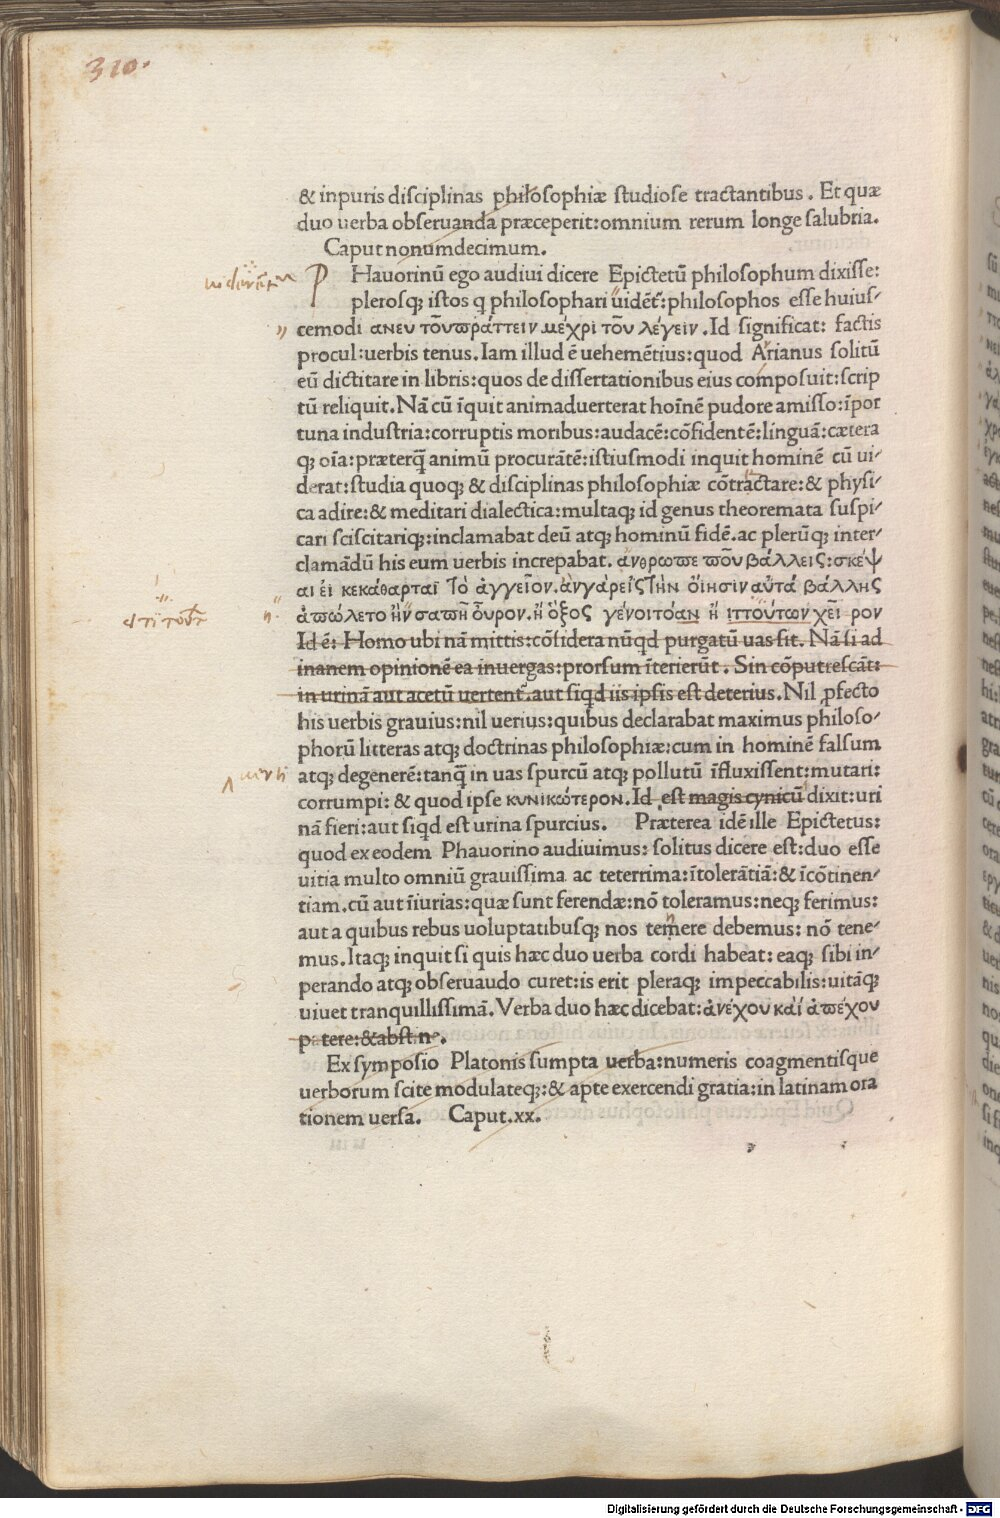 310.
& inpuris disciplinas philosophiæ studiose tractantibus. Et quæ
duo uerba obseruanda præceperit: omnium rerum longe salubria.
Caput nonumdecimum.
P Hauorinū ego audiui dicere Epictetū philosophum dixisse:
plerosq; istos q philosophari uidēt: philosophos esse huius⸗
cemodi ανευ τοῦ πράττειν μέχρι τοῦ λέγειν. Id significat: factis
procul: uerbis tenus. Iam illud ē uehemētius: quod Arianus solitū
eū dictitare in libris: quos de dissertationibus eius composuit: scrip
tū reliquit. Nā cū īquit animaduerterat hoīnē pudore amisso: īpor
tuna industria: corruptis moribus: audacē: cōfidentē: linguā: cætera
q; oīa: præterq̄ animū procurātē: istiusmodi inquit hominē cū ui⸗
derat: studia quoq; & disciplinas philosophiæ cōtractare: & physi⸗
ca adire: & meditari dialectica: multaq; id genus theoremata suspi⸗
cari sciscitariq;: inclamabat deū atq; hominū fidē. ac plerūq; inter⸗
clamādū his eum uerbis increpabat. ἄνθρωπε ποῦ βάλλεις: σκέψ
αι ἐι κεκάθαρται το ἀγγεῖον. ἀνγάρεἰς την ὄιησιν αὐτά βάλλης
ἀπώλετο ἢν σαπῆ οὖρον. ἤ ὄξος γένοιτο αν ἤ ιττούτων χεῖ ρον
Id ē: Homo ubi nā mittis: cōsidera nūqd purgatū uas sit. Nā si ad
inanem opinionē ea inuergas: prorsum īterierūt. Sin cōputrescāt:
in urinā aut acetū uertent. aut siqd iis ipsis est deterius. Nil ꝓfecto
his uerbis grauius: nil uerius: quibus declarabat maximus philoso⸗
phorū litteras atq; doctrinas philosophiæ: cum in hominē falsum
atq; degenerē: tanq̄ in uas spurcū atq; pollutū īfluxissent: mutari:
corrumpi: & quod ipse κυνικώτερον. Id est magis cynicū dixit: uri
nā fieri: aut siqd est urina spurcius. Præterea idē ille Epictetus:
quod ex eodem Phauorino audiuimus: solitus dicere est: duo esse
uitia multo omniū grauissima ac teterrima: ītolerātiā: & īcōtinen⸗
tiam. cū aut īiurias: quæ sunt ferendæ: nō toleramus: neq; ferimus:
aut a quibus rebus uoluptatibusq; nos temere debemus: nō tene⸗
mus. Itaq; inquit si quis hæc duo uerba cordi habeat: eaq; sibi in⸗
perando atq; obseruaudo curet: is erit pleraq; impeccabilis: uitāq;
uiuet tranquillissimā. Verba duo hæc dicebat: ἀνέχου καί ἀπέχου
patere: & abstine.
Ex symposio Platonis sumpta uerba: numeris coagmentisque
uerborum scite modulateq;: & apte exercendi gratia: in latinam ora
tionem uersa. Caput. xx.
Digitalisierung gefördert durch die Deutsche Forschungsgemeinschaft - DFG